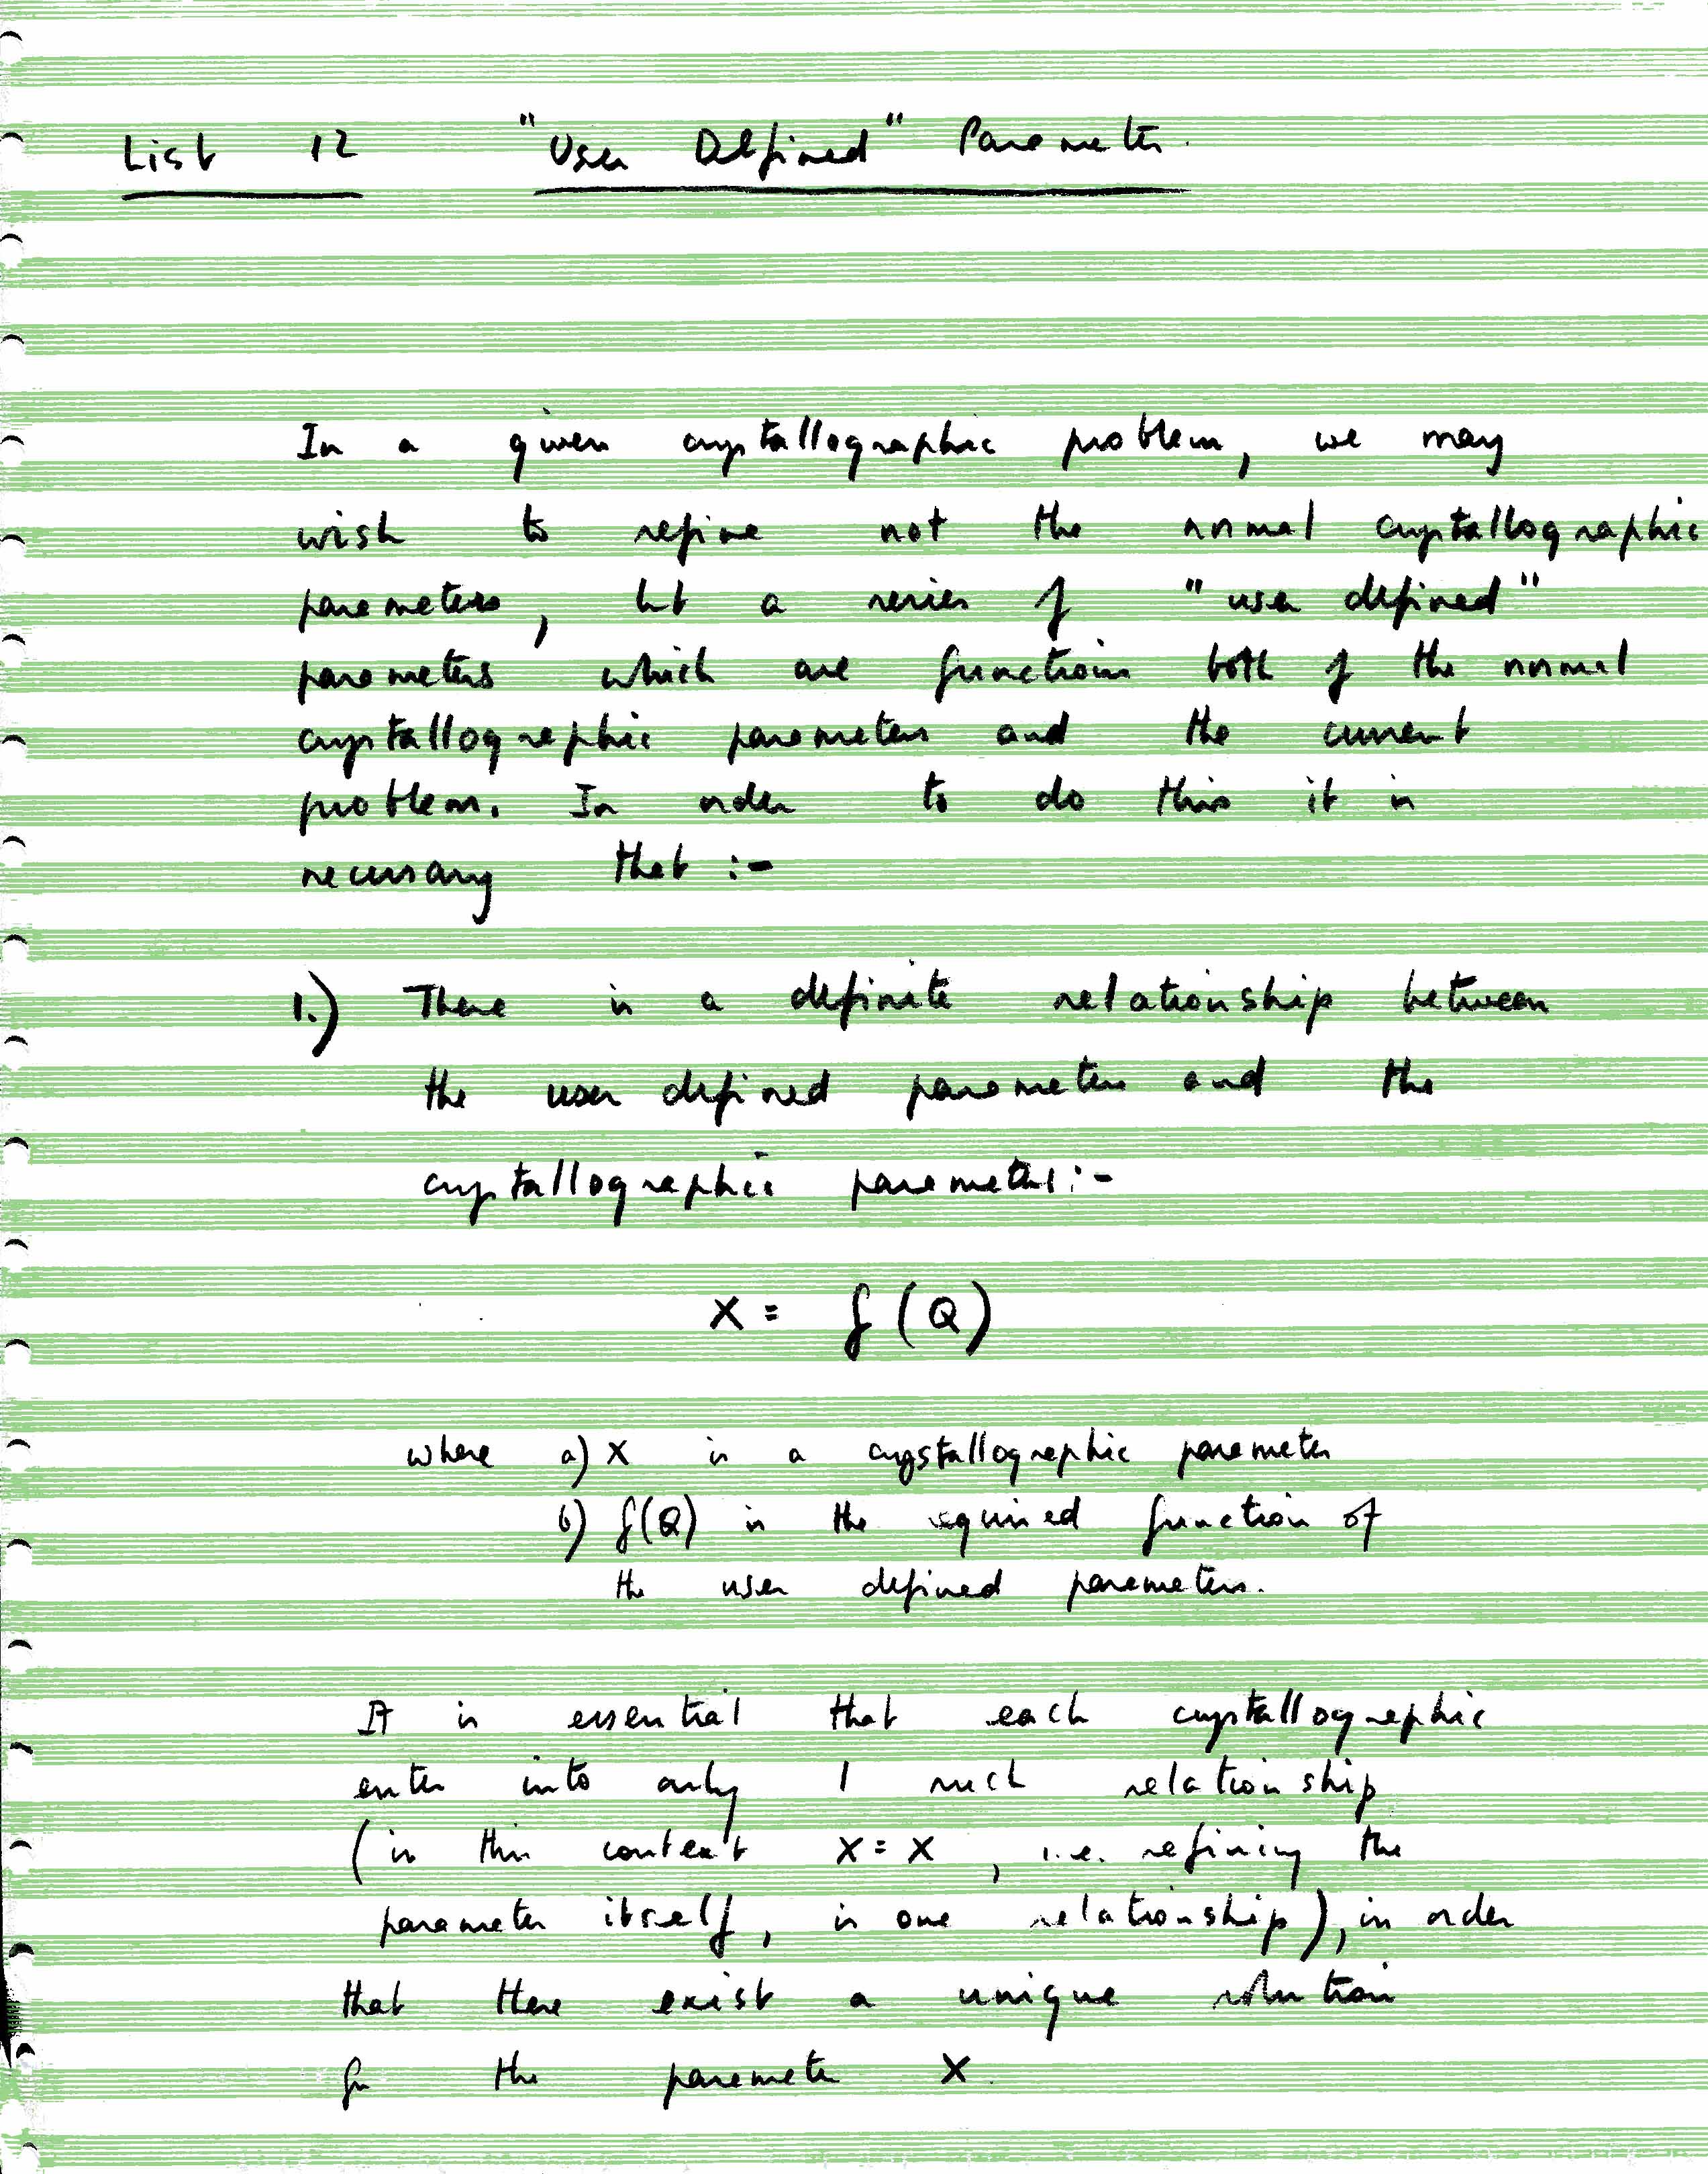 List 12 "User Defined" Parameter.
In a given crystallographic problem, we may
wish to refine not the normal crystallographic
parameters, but a series of "user defined"
parameters which are functions both of the normal
crystallographic parameters and the current
problem. In order to do this it is
necessary that :-
1.) There is a definite relationship between
the user defined parameters and the
crystallographic parameters :-
X = f(Q)
where a) X is a crystallographic parameter
b) f(Q) is the required function of
the user defined parameters.
It is essential that each crystallographic
enter into only 1 such relationship
(in this context X = X, i.e. refining the
parameter itself, is one relationship), in order
that there exist a unique solution
for the parameter X.